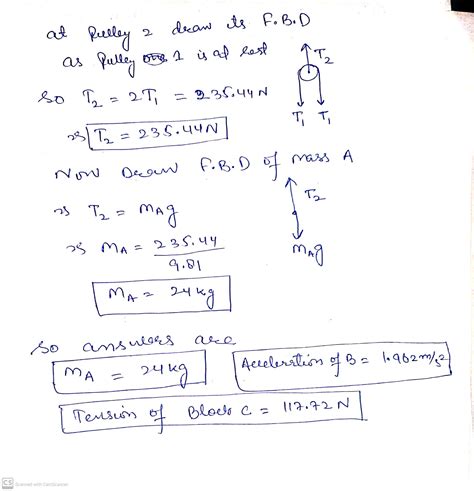 at Pulley 2 draw its F.B.D
as Pulley 1 is at rest
So T₂ = 2T₁ = 235.44N
⇒ T₂ = 235.44N
T₂
T₁ T₁
Now Draw F.B.D of mass A
⇒ T₂ = mAg
T₂
⇒ MA = 235.44
9.81
mAg
MA = 24kg
So answers are
MA = 24kg
Acceleration of B = 1.962m/s²
Tension of Block C = 117.72 N
CS Scanned with CamScanner